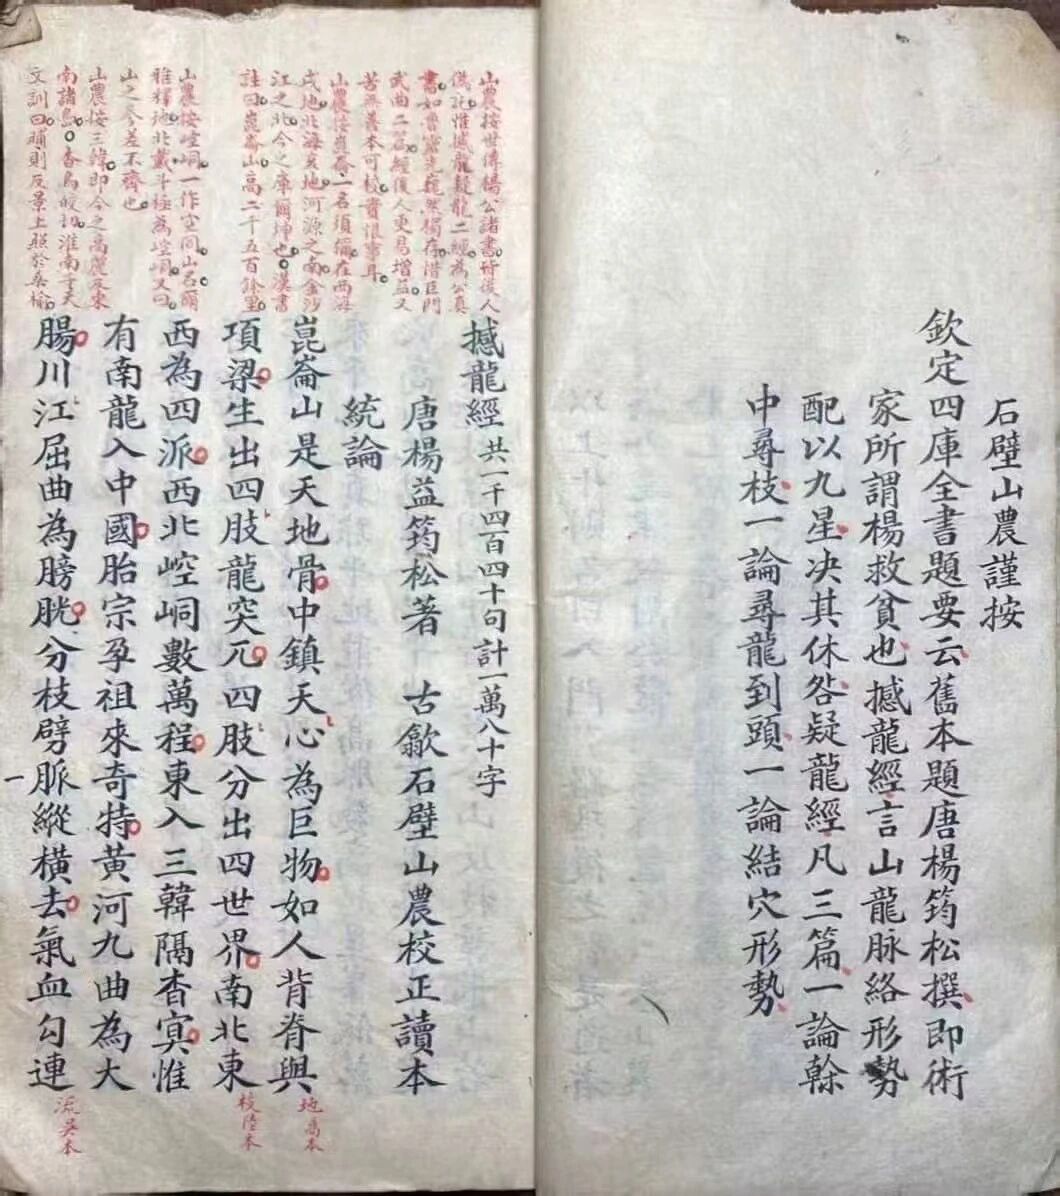 石壁山農謹按
欽定四庫全書題要云舊本題唐楊筠松撰即術
家所謂楊救貧也撼龍經言山龍脉絡形勢
配以九星决其休咎疑龍經凡三篇一論榦
中尋枝一論尋龍到頭一論結穴形勢
山農按世傳楊公諸書後人
偽託惟撼龍疑龍二經為公真
書如魯靈光巍然獨存惜巨門
武曲二篇經後人更易增益又
苦無善本可校實恨事耳
山農按崑崙一名須彌在西海
戌地北海亥地河源之南金沙
江之北今之庫爾坤也漢書
註曰崑崙山高二千五百餘里
山農按崆峒一作空同山名爾
雅釋地北戴斗極為崆峒又曰
山之參差不齊也
山農按三韓即今之高麗及東
南諸島杳鳥皎切淮南子天
文訓曰晡則反景上照於桑榆
撼龍經 共一千四百四十句計一萬八十字
唐楊益筠松著 古歙石壁山農校正讀本
統論
崑崙山是天地骨中鎮天心為巨物如人背脊與
地為本
項梁生出四肢龍突兀四肢分出四世界南北東
枝陸本
西為四派西北崆峒數萬程東入三韓隔杳冥惟
有南龍入中國胎宗孕祖來奇特黃河九曲為大
腸川江屈曲為膀胱分枝劈脈縱橫去氣血勾連
流吳本
一